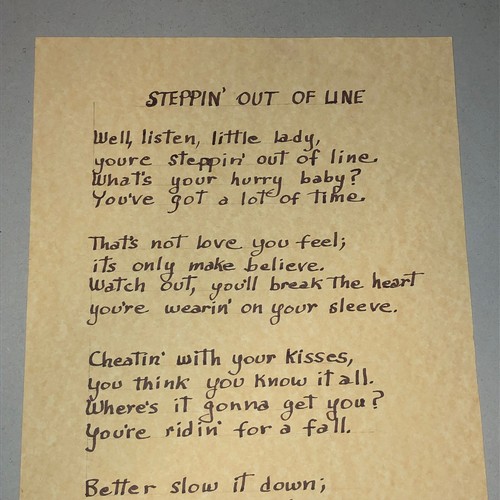 STEPPIN' OUT OF LINE
Well, listen, little lady,
youre steppin' out of line.
What's your hurry baby?
You've got a lot of time.
That's not love you feel;
its only make believe.
Watch out, you'll break the heart
you're wearin' on your sleeve.
Cheatin' with your kisses,
you think you know it all.
Where's it gonna get you?
You're ridin' for a fall.
Better slow it down;